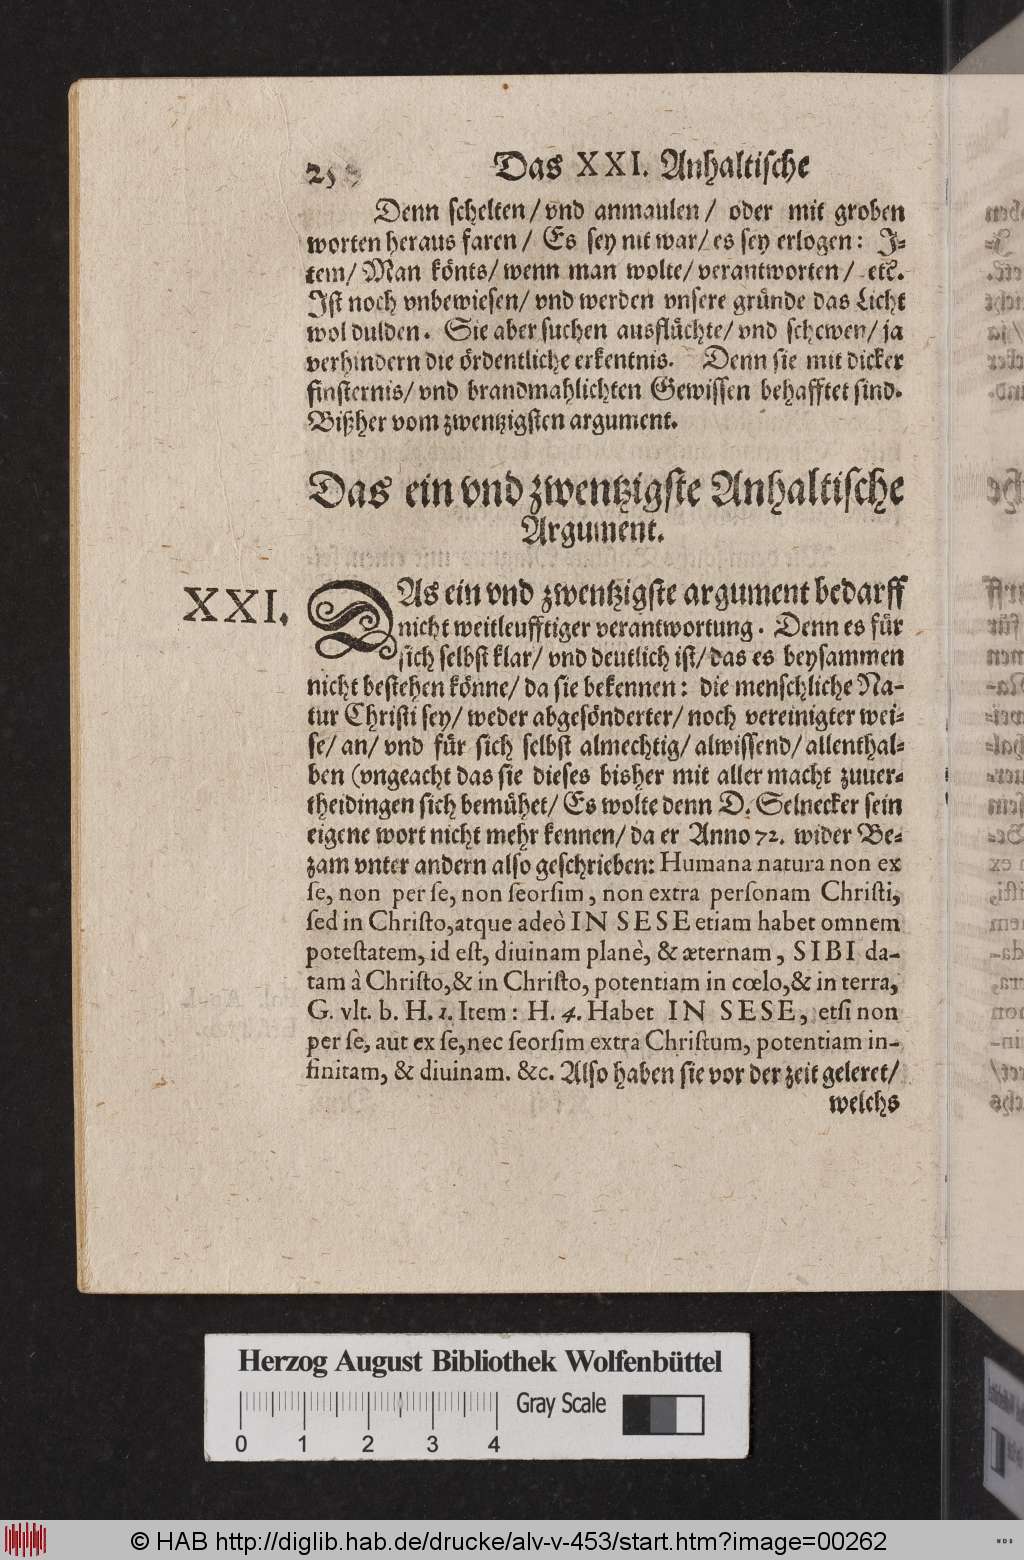 Das XXI. Anhaltische
Denn schelten/ vnd anmaulen/ oder mit groben
worten heraus faren/ Es sey nit war/ es sey erlogen: J-
tem/ Man könts/ wenn man wolte/ verantworten/ etc.
Jst noch vnbewiesen/ vnd werden vnsere gründe das Licht
wol dulden. Sie aber suchen ausflüchte/ vnd schewen/ ja
verhindern die ördentliche erkentnis. Denn sie mit dicker
finsternis/ vnd brandmahlichten Gewissen behafftet sind.
Bißher vom zwentzigsten argument.
Das ein vnd zwentzigste Anhaltische
Argument.
XXI.
DAs ein vnd zwentzigste argument bedarff
nicht weitleufftiger verantwortung. Denn es für
sich selbst klar/ vnd deutlich ist/ das es beysammen
nicht bestehen könne/ da sie bekennen: die menschliche Na-
tur Christi sey/ weder abgesönderter/ noch vereinigter wei-
se/ an/ vnd für sich selbst almechtig/ alwissend/ allenthal-
ben (vngeacht das sie dieses bisher mit aller macht zuuer-
theidingen sich bemühet/ Es wolte denn D. Selnecker sein
eigene wort nicht mehr kennen/ da er Anno 72. wider Be-
zam vnter andern also geschrieben: Humana natura non ex
se, non per se, non seorsim, non extra personam Christi,
sed in Christo, atque adeò IN SESE etiam habet omnem
potestatem, id est, diuinam planè, & æternam, SIBI da-
tam à Christo, & in Christo, potentiam in cœlo, & in terra,
G. vlt. b. H. 1. Item: H. 4. Habet IN SESE, etsi non
per se, aut ex se, nec seorsim extra Christum, potentiam in-
finitam, & diuinam. &c. Also haben sie vor der zeit geleret/
welchs
Herzog August Bibliothek Wolfenbüttel
Gray Scale
0 1 2 3 4
© HAB http://diglib.hab.de/drucke/alv-v-453/start.htm?image=00262